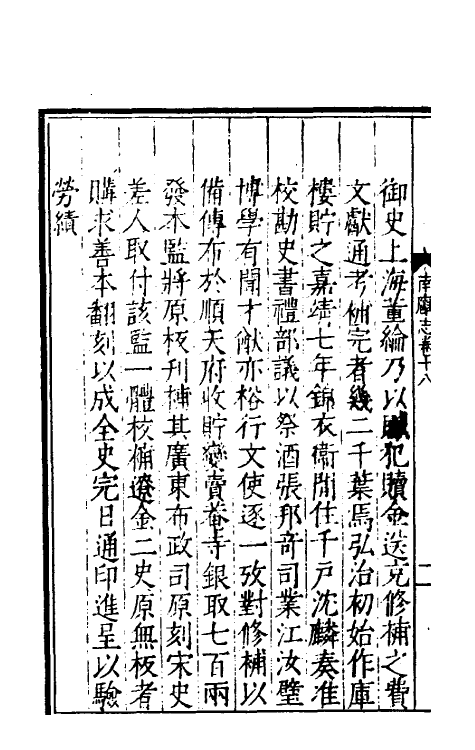 南廱志卷十八
二
御史上海董綸乃以贓犯贖金送充修補之費
文獻通考補完者幾二千葉焉弘治初始作庫
樓貯之嘉靖七年錦衣衞閒住千戸沈麟奏准
校勘史書禮部議以祭酒張邦竒司業江汝璧
博學有聞才猷亦裕行文使逐一攷對修補以
備傳布於順天府收貯變賣菴寺銀取七百兩
發本監將原板刋補其廣東布政司原刻宋史
差人取付該監一體校補遼金二史原無板者
購求善本翻刻以成全史完日通印進呈以驗
勞績